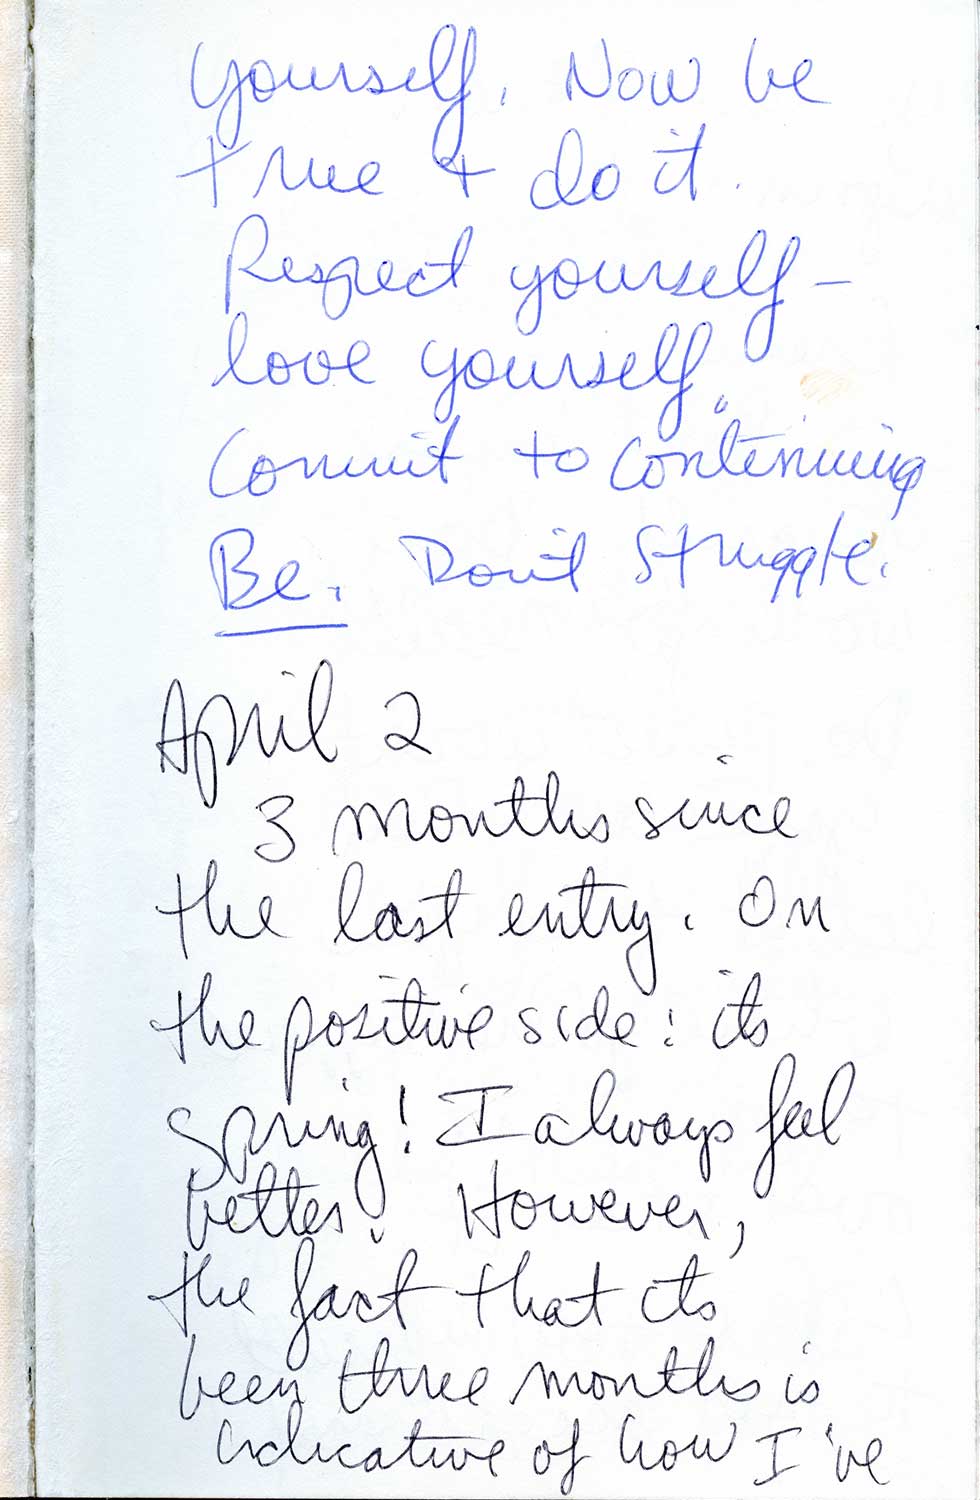 yourself. Now be
true + do it.
Respect yourself –
love yourself.
Commit to continuing
Be. Don't Struggle.
April 2
3 months since
the last entry. On
the positive side: its
spring! I always feel
better! However,
the fact that its
been three months is
indicative of how I've